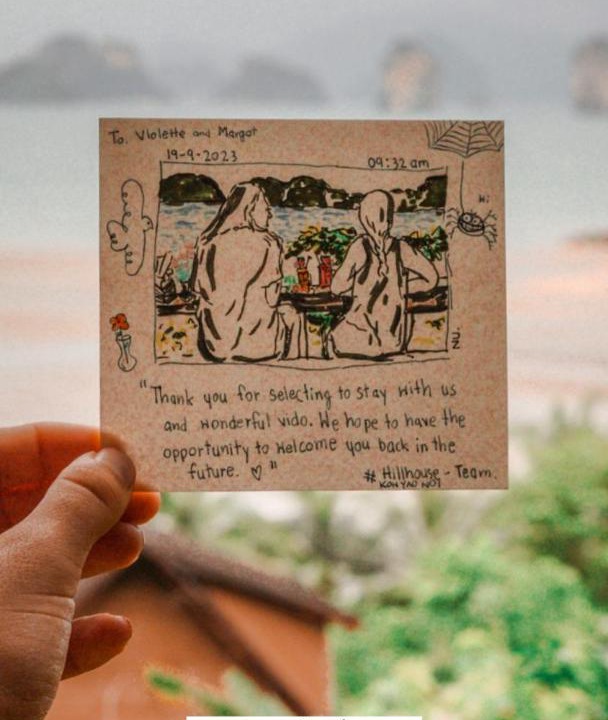 To. Violette and Margot
19-9-2023
09:32 am
Hi
NU.
"Thank you for selecting to stay with us
and wonderful vido. We hope to have the
opportunity to welcome you back in the
future. ♡"
# Hillhouse - Team.
KOH YAO NOY